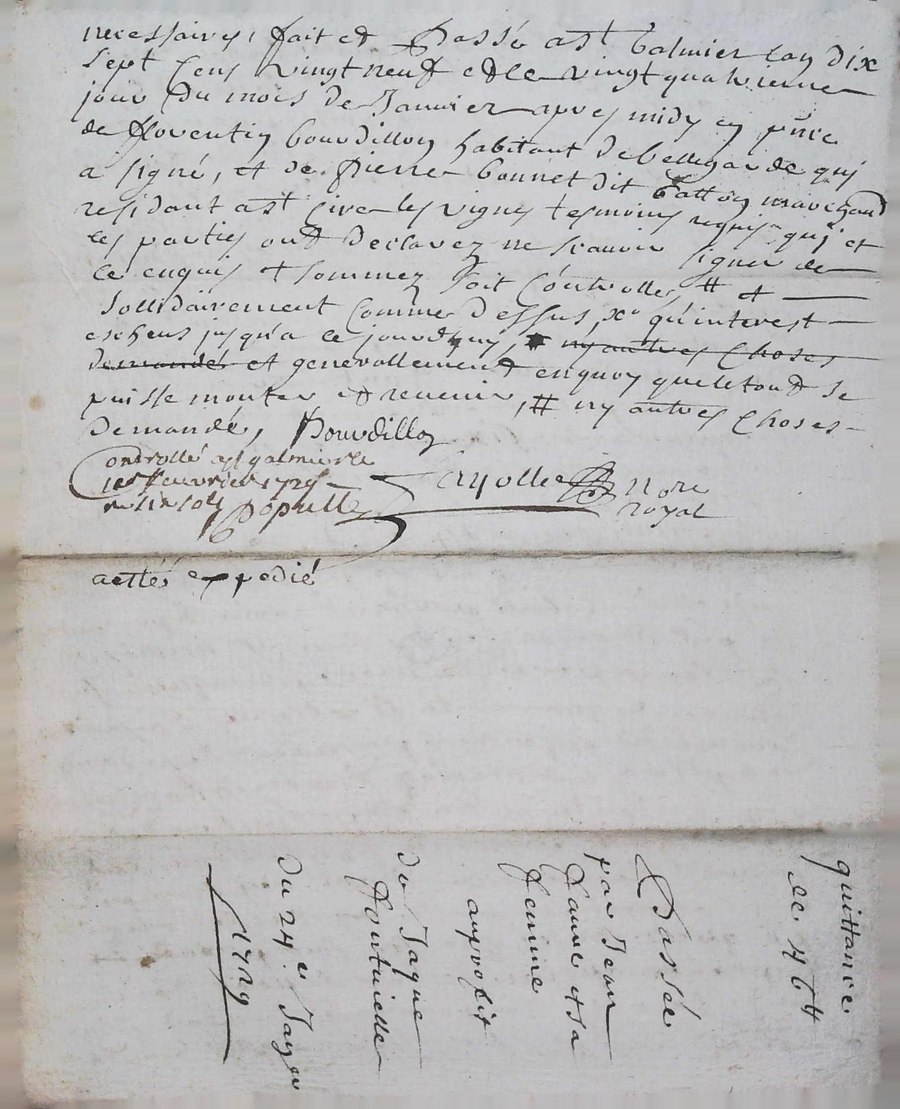 necessaires, fait et Passé a st Galmier lan dix
sept cens vingt neuf et le vingt quatrieme
jour du mois de Janvier apres midy en pnce
de floventin bourdillon habitant de bellegarde qui
a signé, et de Pierre bonnet dit marchand
residant a st Cire les vignes tesmoins requis qui et
les parties ont declarez ne scavoir signer de
ce enquis et sommez soit controllé, # et
sollidairement comme dessus, qu'interest
escheus jusqu'a ce jourdhuy, # ny autres choses
demandés et generallement en quoy que le tout se
puisse monter et revenir, # ny autres choses
demandé, Bourdillon
Controllé a st galmier le
fevrier 1729
Populle
Fayolle Nore
royal
actés expedié
quittance
de 46 tt
Passée
par Jean
et sa
femme
auprofit
de Jaque
du 24e Janer
1729